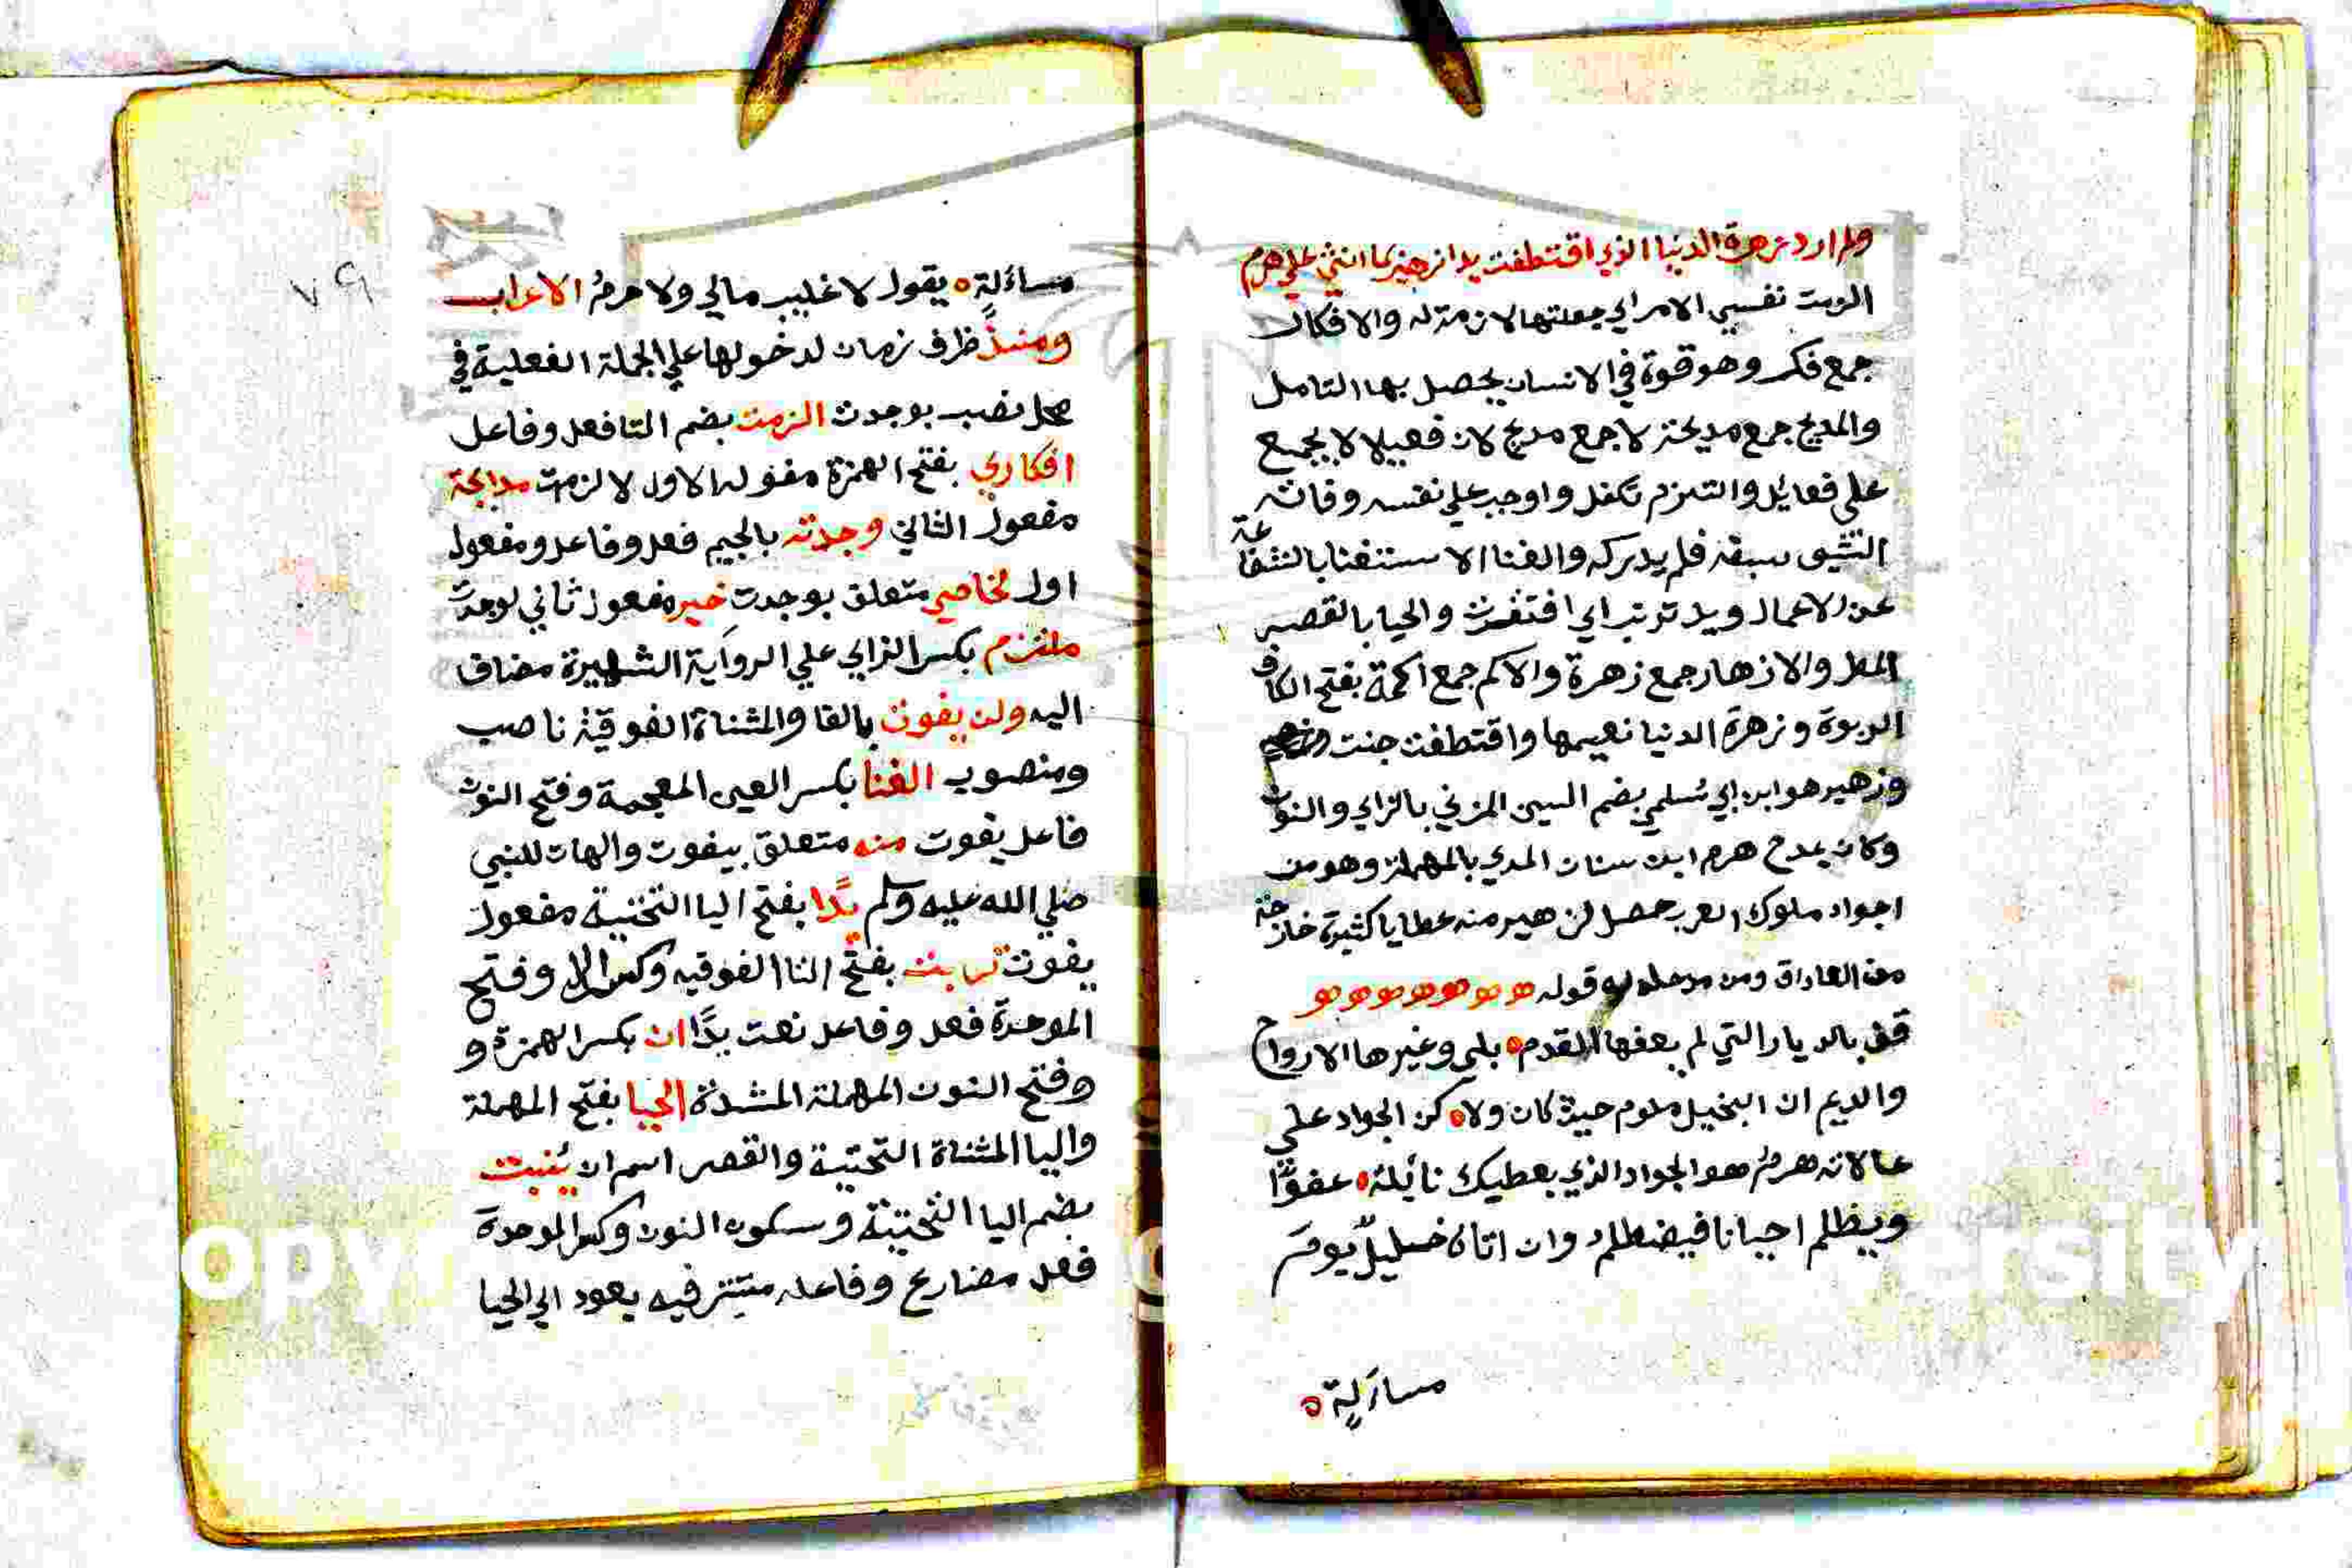 ولم ارد زهرة الدنيا الذي اقتطفت يدا زهير بما اثني علي هرم
الزمت نفسي الامر اي جعلتها لازمة له والافكار
جمع فكر وهو قوة في الانسان يحصل بها التامل
والمديح جمع مديحة لا جمع مديح لان فعيلا لا يجمع
علي فعايل والتمزم تكفل واوجب علي نفسه وفاته
الشي سبقه فلم يدركه والغنا الاستغنا بالشفاعة
عن الاعمال ويد تربت اي افتقرت والحيا بالقصر
المطر والازهار جمع زهرة والاكم جمع اكمة بفتح الكاف
الربوة وزهرة الدنيا نعيمها واقتطفت جنت
وزهير هو ابن ابي سُلمي بضم السين المزني بالزاي والنون
وكان يمدح هرم ابن سنان المدي بالمهملة وهو من
اجواد ملوك العرب حصل لزهير منه عطايا كثيرة خارجة
من العاداق ومن مدحله له قوله
قف بالديار التي لم يعفها القدم ه بلي وغيرها الارواح
والديم ان البخيل ملوم حيث كان ولاه كن الجواد علي
علاته هرمُ هو الجواد الذي يعطيك نائلهُ ه عفوًا
ويظلم احيانا فيضطلم وان اتاه خليلٌ يومَ
مساءلةٍ ه
٧٩
مساءلةٍ ه يقول لا غايب مالي ولا حرمُ الاعراب
ومنذُ ظرف زمان لدخولها علي الجملة الفعلية في
محل نصب بوجدت الزمت بضم التا فعل وفاعل
افكاري بفتح الهمزة مفوله الاول لالزمت مدايحه
مفعول الثاني وجدته بالجيم فعل وفاعل ومفعول
اول لخلاصي متعلق بوجدت خير مفعول ثاني لوجدت
ملتزم بكسر الزاي علي الرواية الشهيرة مضاف
اليه ولن يفوت بالفا والمثناة الفوقية ناصب
ومنصوب الغنا بكسر الغين المعجمة وفتح النون
فاعل يفوت منه متعلق بيفوت والهات للنبي
صلي الله عليه وسلم يدًا بفتح اليا التحتية مفعول
يفوت تربت بفتح التا الفوقيه وكسر الرا وفتح
الموحدة فعل وفاعل نعت يدًا ان بكسر الهمزة و
وفتح النون المهملة المشددة الحيا بفتح المهملة
واليا المثناة التحتية والقصر اسم ان يُنبت
بضم اليا التحتية وسكون النون وكسر الموحدة
فعل مضارع وفاعله مستتر فيه يعود الي الحيا